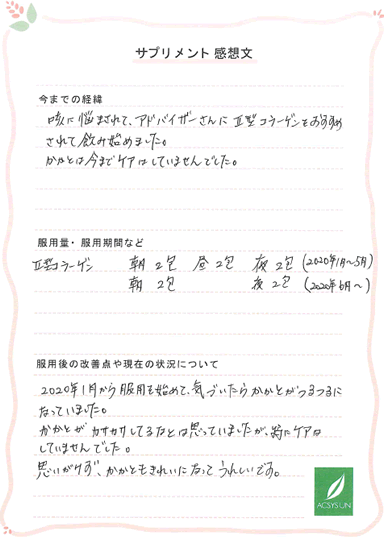 サプリメント 感想文
今までの経緯
咳に悩まされて、アドバイザーさんに Ⅱ型コラーゲンをおすすめ
されて飲み始めました。
かかとは今までケアはしていませんでした。
服用量・服用期間など
Ⅱ型コラーゲン 朝 2包 昼 2包 夜 2包 (2020年1月〜5月)
朝 2包 夜 2包 (2020年6月〜)
服用後の改善点や現在の状況について
2020年1月から服用を始めて、気づいたらかかとがつるつるに
なっていました。
かかとが カサカサしてるなとは思っていましたが、特にケアは
していませんでした。
思いがけず、かかともきれいになって うれしいです。
ACSYSUN